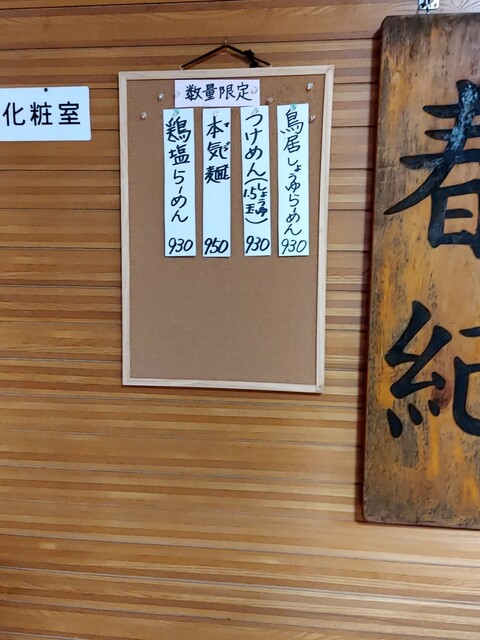 数量限定
鳥居しょうゆらーめん 930
つけめん(しょうゆ 1.5玉) 930
本気麺 950
鶏塩らーめん 930
化粧室
春紀